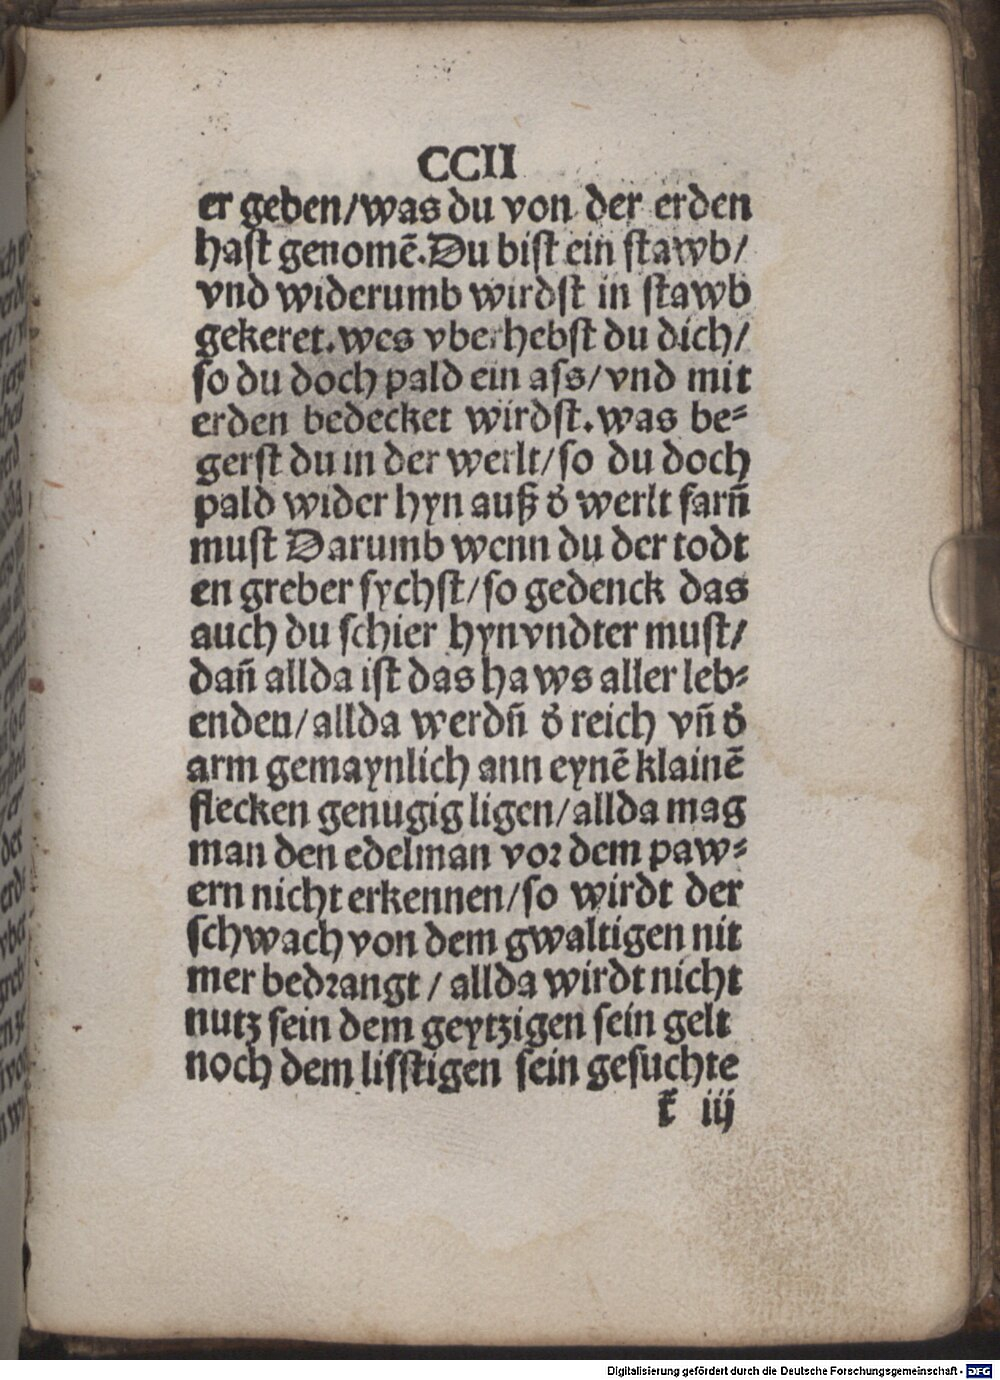 CCII
er geben/was du von der erden
hast genomē.Du bist ein stawb/
vnd widerumb wirdst in stawb
gekeret.wes vberhebst du dich/
so du doch pald ein ass/vnd mit
erden bedecket wirdst.was be⸗
gerst du in der werlt/so du doch
pald wider hyn auß d̕ werlt farn̄
must Darumb wenn du der todt
en greber sychst/so gedenck das
auch du schier hynvndter must/
dan̄ allda ist das haws aller leb⸗
enden/allda werdn̄ d̕ reich vn̄ d̕
arm gemaynlich ann eynē klainē
flecken genugig ligen/allda mag
man den edelman vor dem paw⸗
ern nicht erkennen/so wirdt der
schwach von dem gwaltigen nit
mer bedrangt / allda wirdt nicht
nutz sein dem geytzigen sein gelt
noch dem lisstigen sein gesuchte
iij
Digitalisierung gefördert durch die Deutsche Forschungsgemeinschaft - DFG